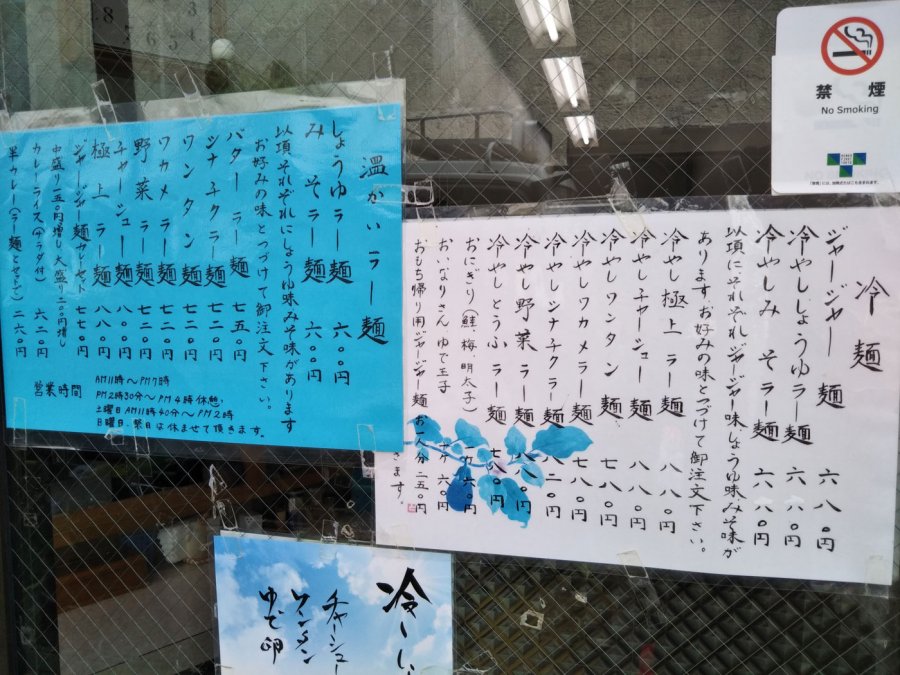 温かいラー麺
しょうゆラー麺 六〇〇円
みそラー麺 六〇〇円
以項それぞれにしょうゆ味みそ味があります
お好みの味とつづけて御注文下さい。
バターラー麺 七五〇円
シナチクラー麺 七二〇円
ワンタン麺 七二〇円
ワカメラー麺 七二〇円
野菜ラー麺 七二〇円
チャーシュー麺 八〇〇円
極上ラー麺 八八〇円
ジャージャー麺カレーセット 八八〇円
中盛り一五〇円増し、大盛り二〇〇円増し
カレーライス(サラダ付) 六二〇円
半カレー(ラー麺とセットで) 二六〇円
営業時間
AM11時〜PM7時
PM2時30分〜PM4時休憩、
土曜日AM11時40分〜PM2時
日曜日、祭日は休ませて頂きます。
冷麺
ジャージャー麺 六八〇円
冷やししょうゆラー麺 六八〇円
冷やしみそラー麺 六八〇円
以項にそれぞれジャージャー味、しょうゆ味みそ味が
あります。お好みの味とつづけて御注文下さい。
冷やし極上ラー麺 八八〇円
冷やしチャーシュー麺 八八〇円
冷やしワンタン麺 七八〇円
冷やしワカメラー麺 七八〇円
冷やしシナチクラー麺 八二〇円
冷やし野菜ラー麺 八八〇円
冷やしとうふラー麺 七八〇円
おにぎり(鮭、梅、明太子) 一ケ 一六〇円
おいなりさん ゆで玉子 一ケ 六〇円
おもち帰り用ジャージャー麺お一人分 二五〇円
きます。
禁煙
No Smoking
冷し
チャーシュー
ワンタン
ゆで卵